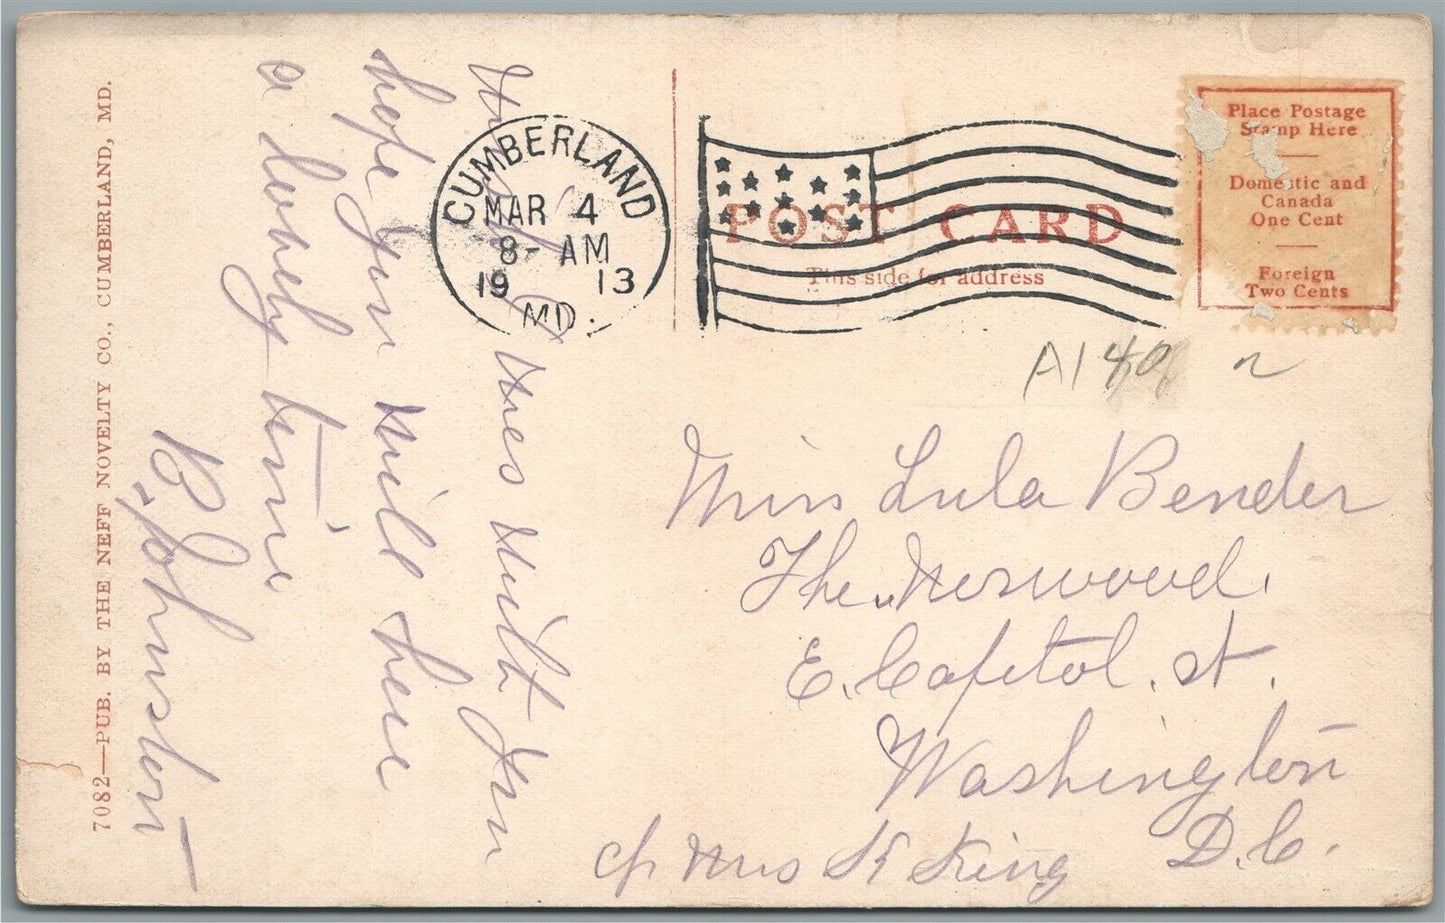 7082—PUB. BY THE NEFF NOVELTY CO., CUMBERLAND, MD.
CUMBERLAND
MAR 4
8- AM
19 13
MD.
POST CARD
This side for address
Place Postage
Stamp Here
Domestic and
Canada
One Cent
Foreign
Two Cents
A149
wes with you
hope you will have
a lovely time
B. Johnston
Miss Lula Bender
The Norwood.
E. Capitol. St.
Washington
D.C.
c/o Mrs K King